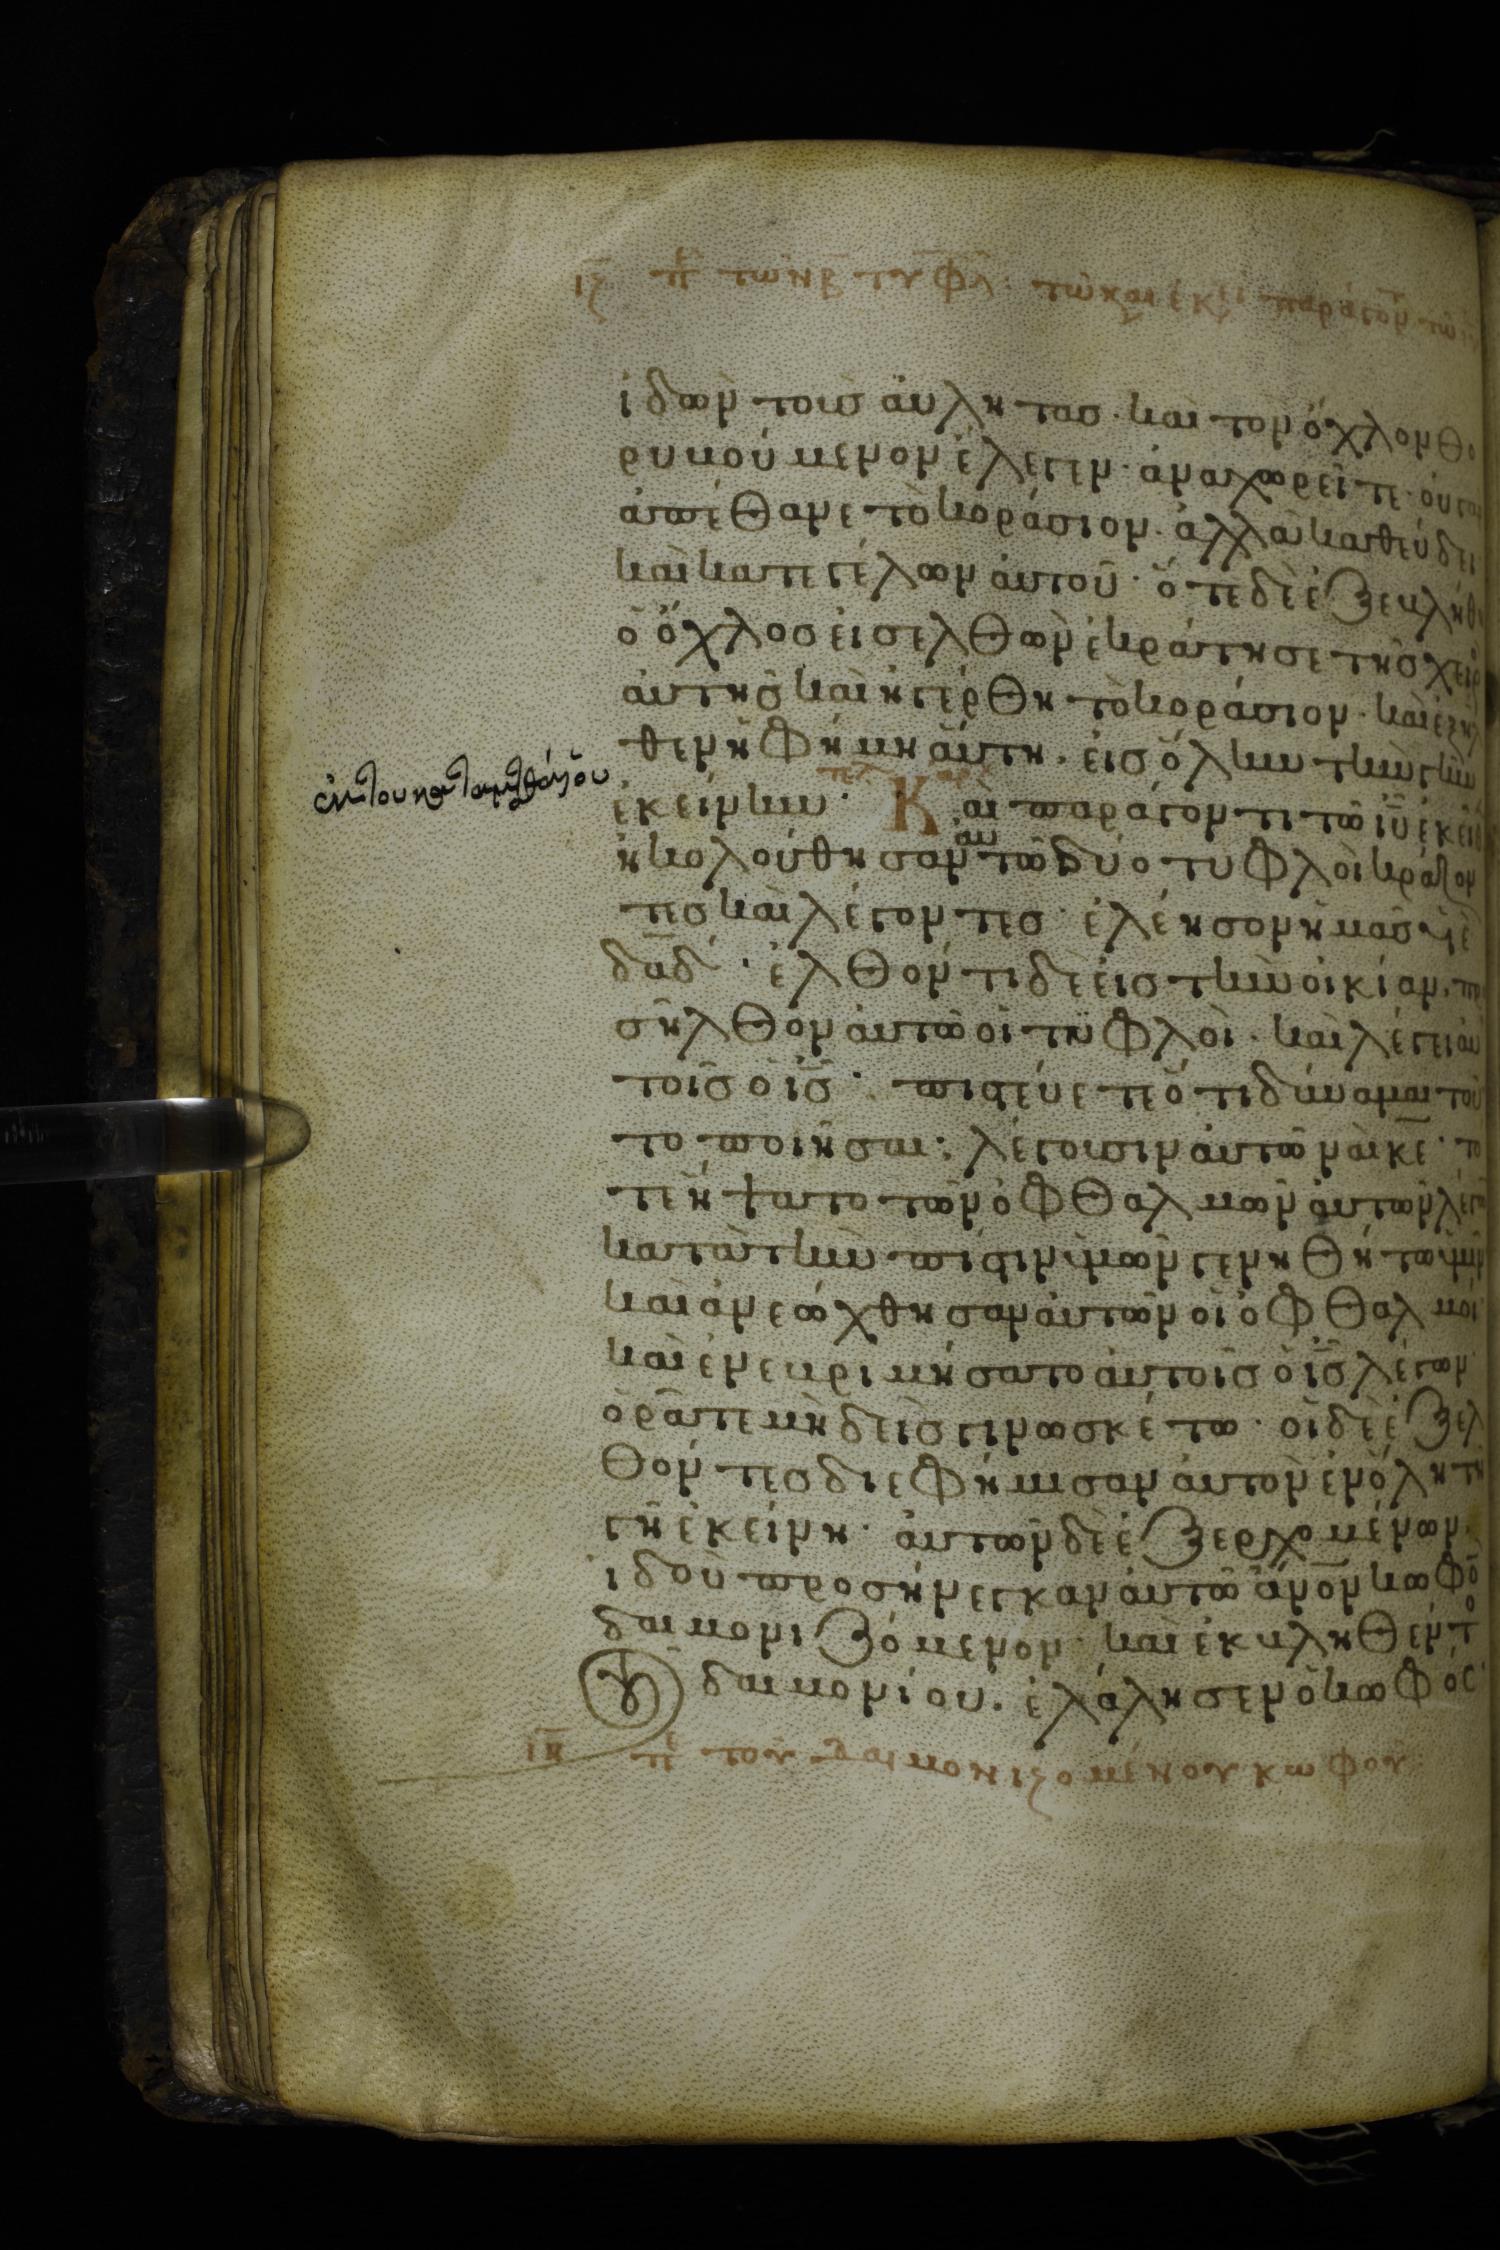 ιζ πε τῶν β τυφλ· τῶ καιρ εκει παράγοντι τῶ
ἰδὼν τοὺς ἀυλητας· καὶ τὸν ὄχλον θο
ρυβούμενον ἔλεγεν· ἀναχωρεῖτε· οὐ γαρ
ἀπέθανε τὸ κοράσιον· ἀλλὰ καθεύδει
καὶ κατεγέλων ἀυτοῦ· ὅτε δὲ ἐξεβλήθη
ὁ ὄχλος εἰσελθὼν ἐκράτησε τῆς χειρ
ἀυτῆς καὶ ἠγέρθη τὸ κοράσιον· καὶ ἐξῆλ
θεν ἡ φήμη ἅυτη· εἰς ὅλην τὴν γῆν
ἐκείνην· Καὶ παράγοντι τῶ ιυ ἐκεῖθ
ἠκολούθησαν τῶ δύο τυφλοὶ κράζον
τες καὶ λέγοντες· ἐλέησον ἡμᾶς υἱὲ
δαδ· ἐλθόντι δὲ εἰς τὴν οἰκίαν, προ
σῆλθον ἀυτῶ οἱ τυφλοὶ· καὶ λέγει ἀυ
τοῖς ὁ ις· πιστεύετε ὅτι δύναμαι τοῦ
το ποιῆσαι; λέγουσιν ἀυτῶ ναὶ κε· το
τε ἥψατο τῶν ὀφθαλμῶν ἀυτῶν λέγων
κατὰ τὴν πίστιν ὑμῶν γενηθήτω ὑμῖν
καὶ ἀνεώχθησαν ἀυτῶν οἱ ὀφθαλμοι
καὶ ἐνεβριμήσατο ἀυτοῖς ὁ ις λέγων
ὁρᾶτε μηδεὶς γινωσκέτω· οἱ δὲ ἐξελ
θόντες διεφήμισαν ἀυτὸν ἐν ὅλη τῆ
γῆ ἐκείνη· ἀυτῶν δὲ ἐξερχομένων
ἰδοὺ προσήνεγκαν ἀυτῶ ἄνον κωφὸ
δαιμονιζόμενον· καὶ ἐκβληθέντο
δαιμονίου· ἐλάλησεν ὁ κωφός
ιη πε τοῦ δαιμονιζομένου κωφοῦ